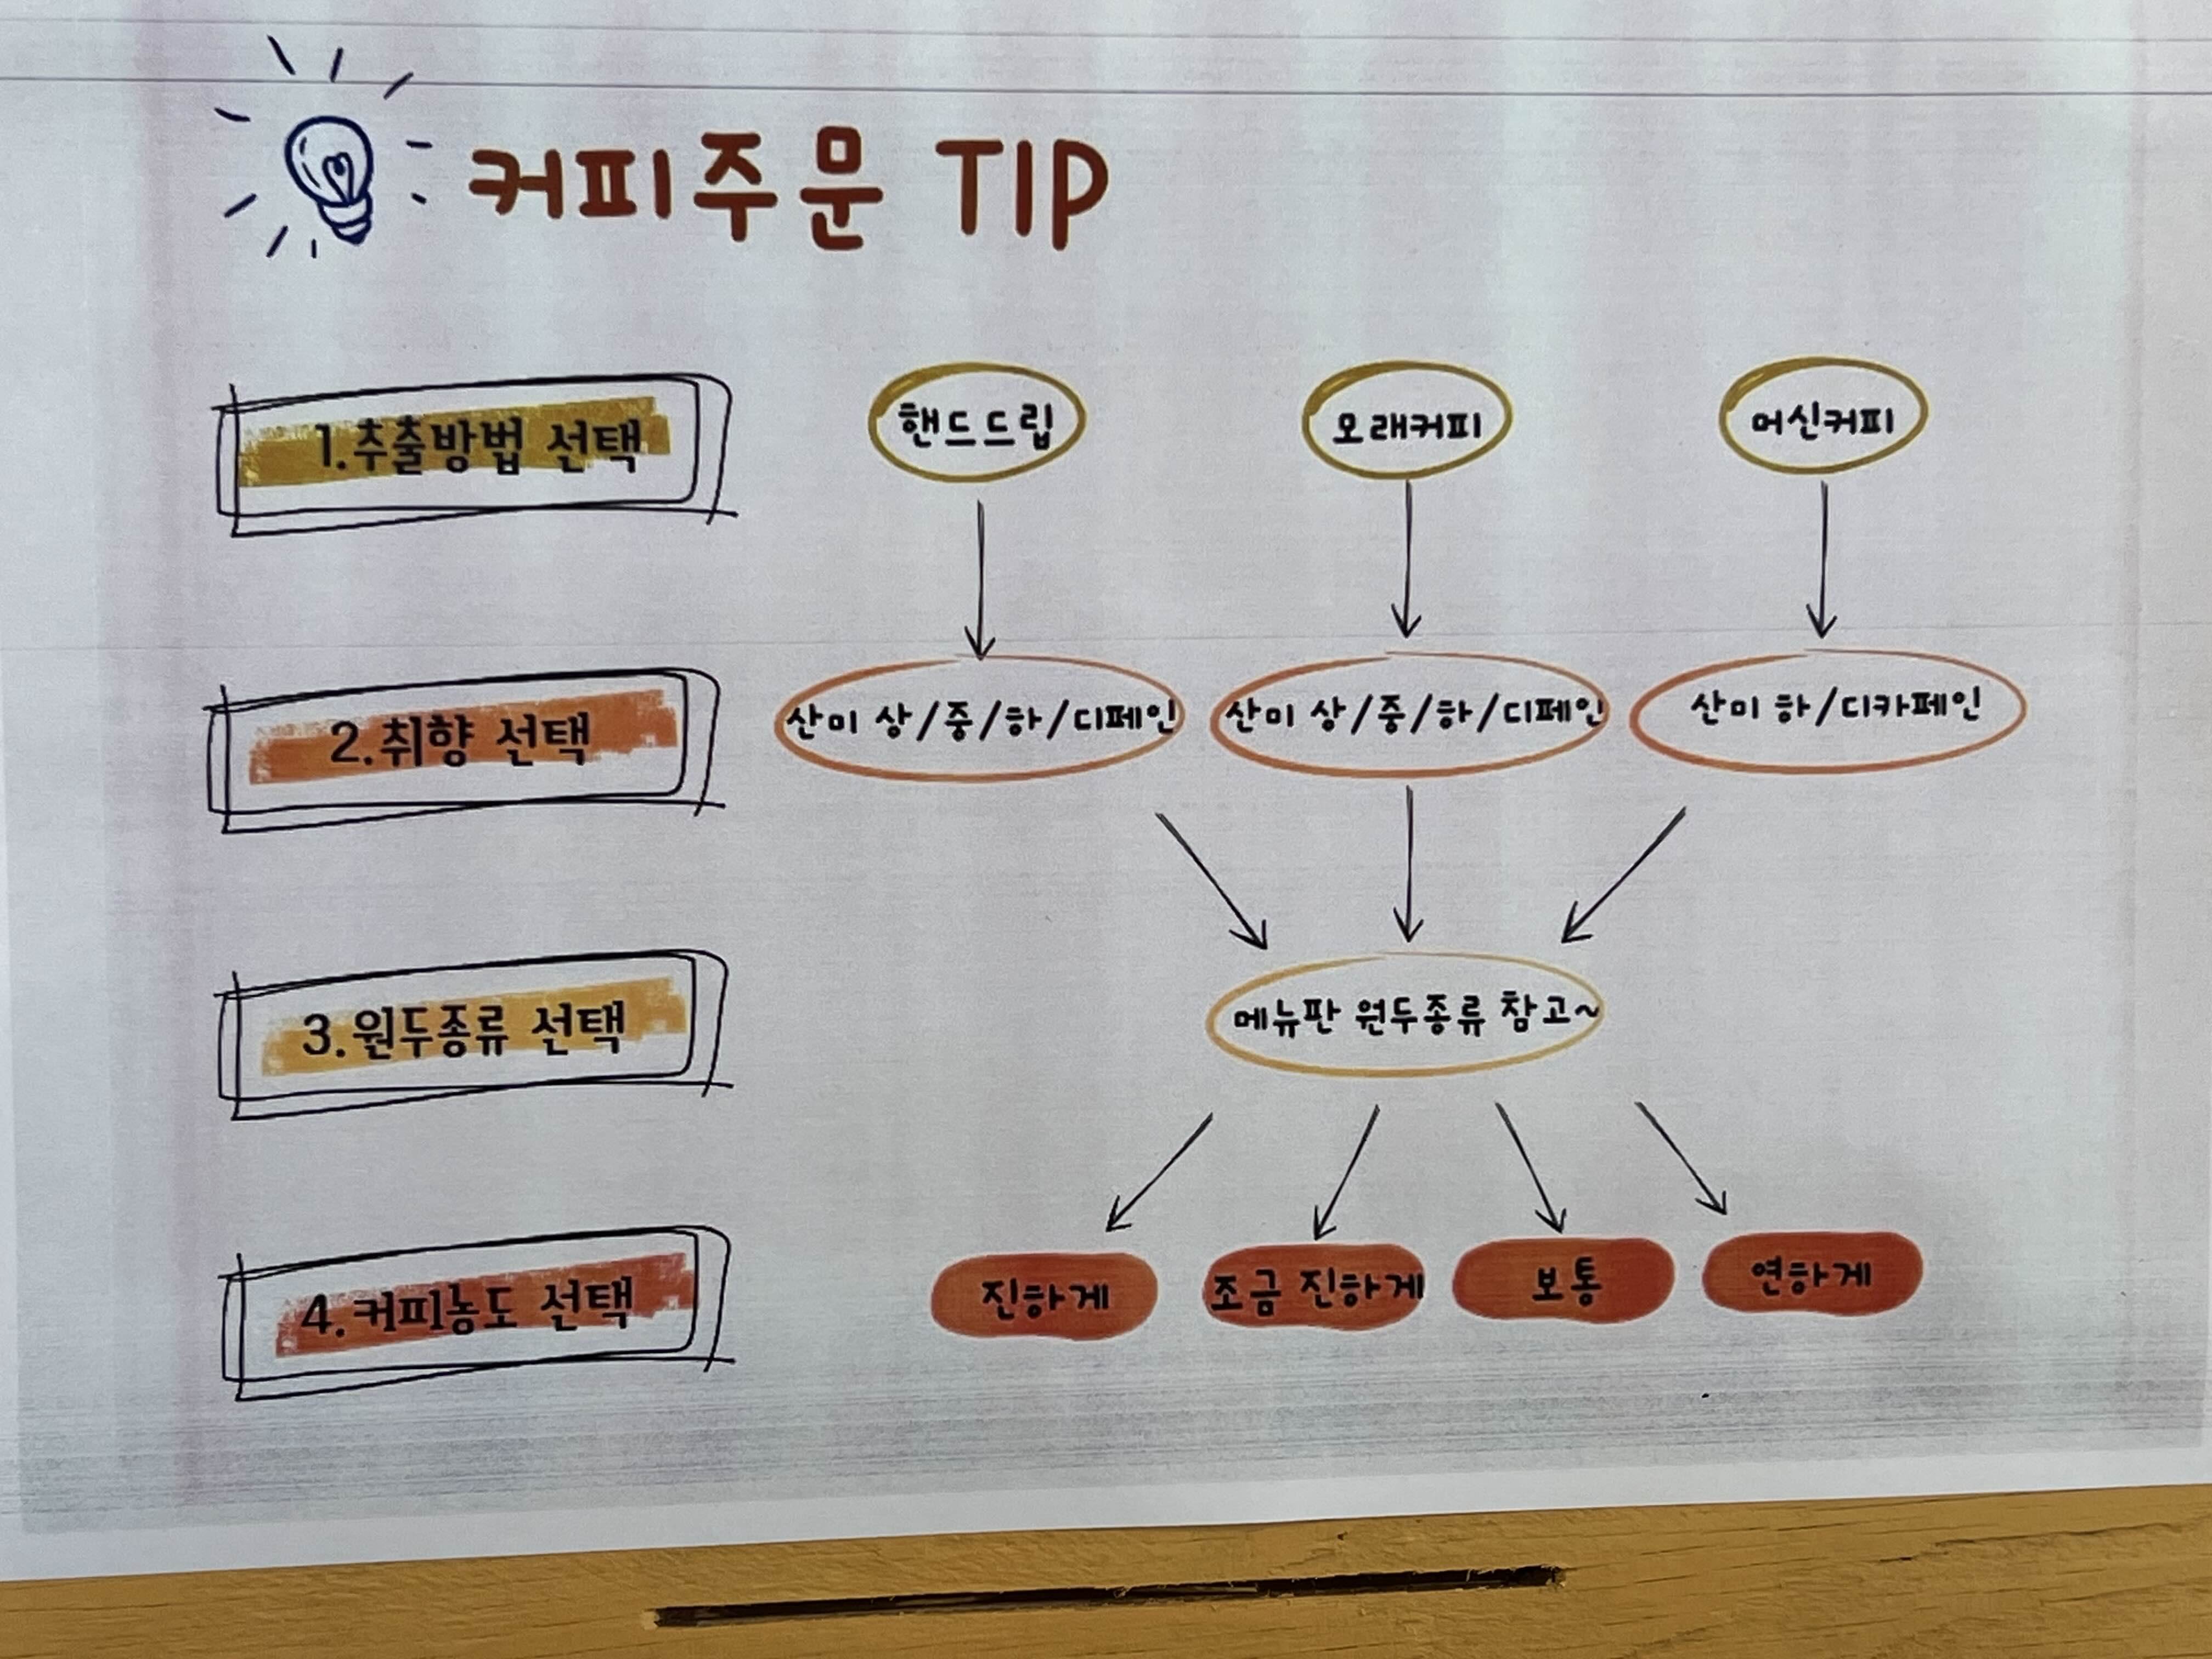 커피주문 TIP
1.추출방법 선택
핸드드립
오래커피
머신커피
2.취향 선택
산미 상/중/하/디페인
산미 상/중/하/디페인
산미 하/디카페인
3.원두종류 선택
메뉴판 원두종류 참고~
4.커피농도 선택
진하게
조금 진하게
보통
연하게